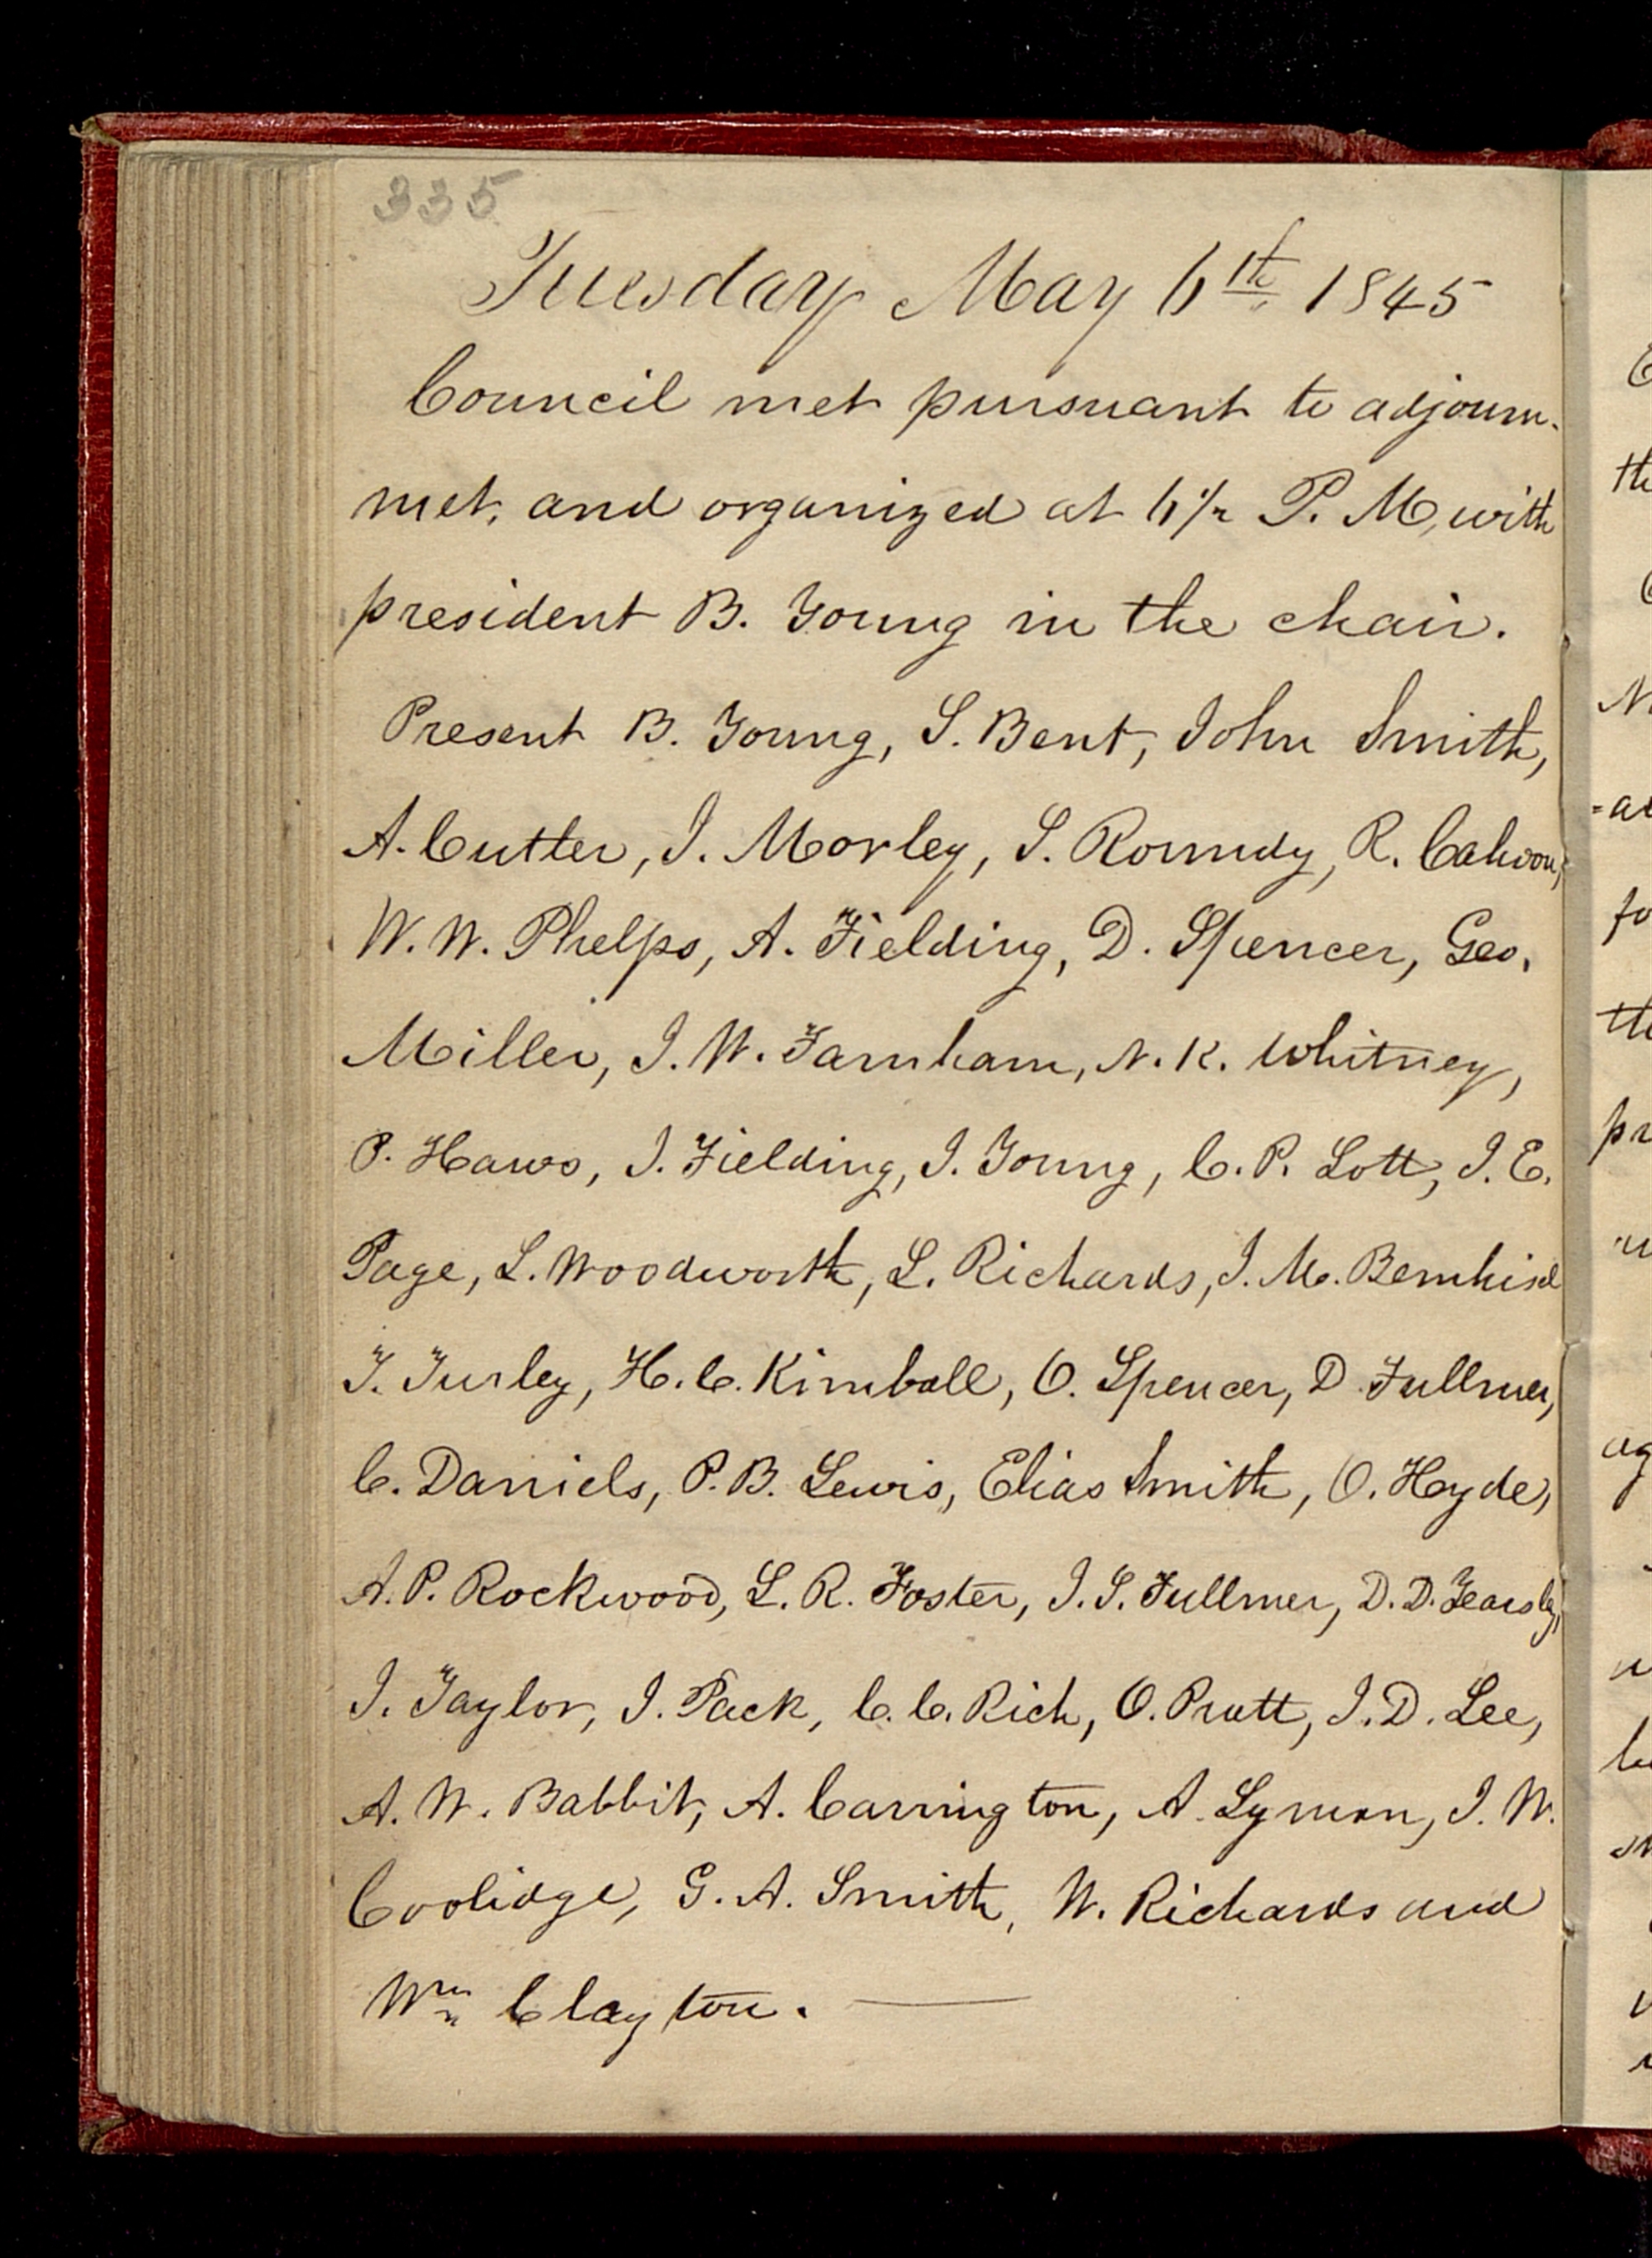 335
Tuesday May 6th 1845
Council met pursuant to adjourn-
met, and organized at 6 1/2 P. M, with
president B. Young in the chair.
Present B. Young, S. Bent, John Smith,
A. Cutler, I. Morley, S. Roundy, R. Cahoon,
W. W. Phelps, A. Fielding, D. Spencer, Geo.
Miller, J. W. Farnham, N. K. Whitney,
P. Haws, J. Fielding, J. Young, C. P. Lott, J. E.
Page, L. Woodworth, L. Richards, J. M. Bernhisel
T. Turley, H. C. Kimball, O. Spencer, D. Fullmer,
C. Daniels, P. B. Lewis, Elias Smith, O. Hyde,
A. P. Rockwood, L. R. Foster, J. S. Fullmer, D. D. Yearsley,
J. Taylor, J. Pack, C. C. Rich, O. Pratt, J. D. Lee,
A. W. Babbit, A. Carrington, A. Lyman, J. W.
Coolidge, G. A. Smith, W. Richards and
Wm Clayton.